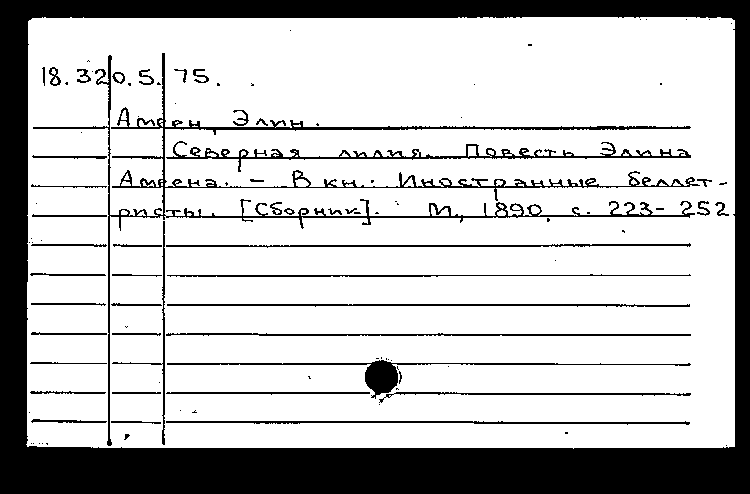 18.320.5.75.
Амеен, Элин.
Северная лилия. Повесть Элина
Амеена. – В кн.: Иностранные беллет-
ристы. [Сборник]. М., 1890, с. 223–252.